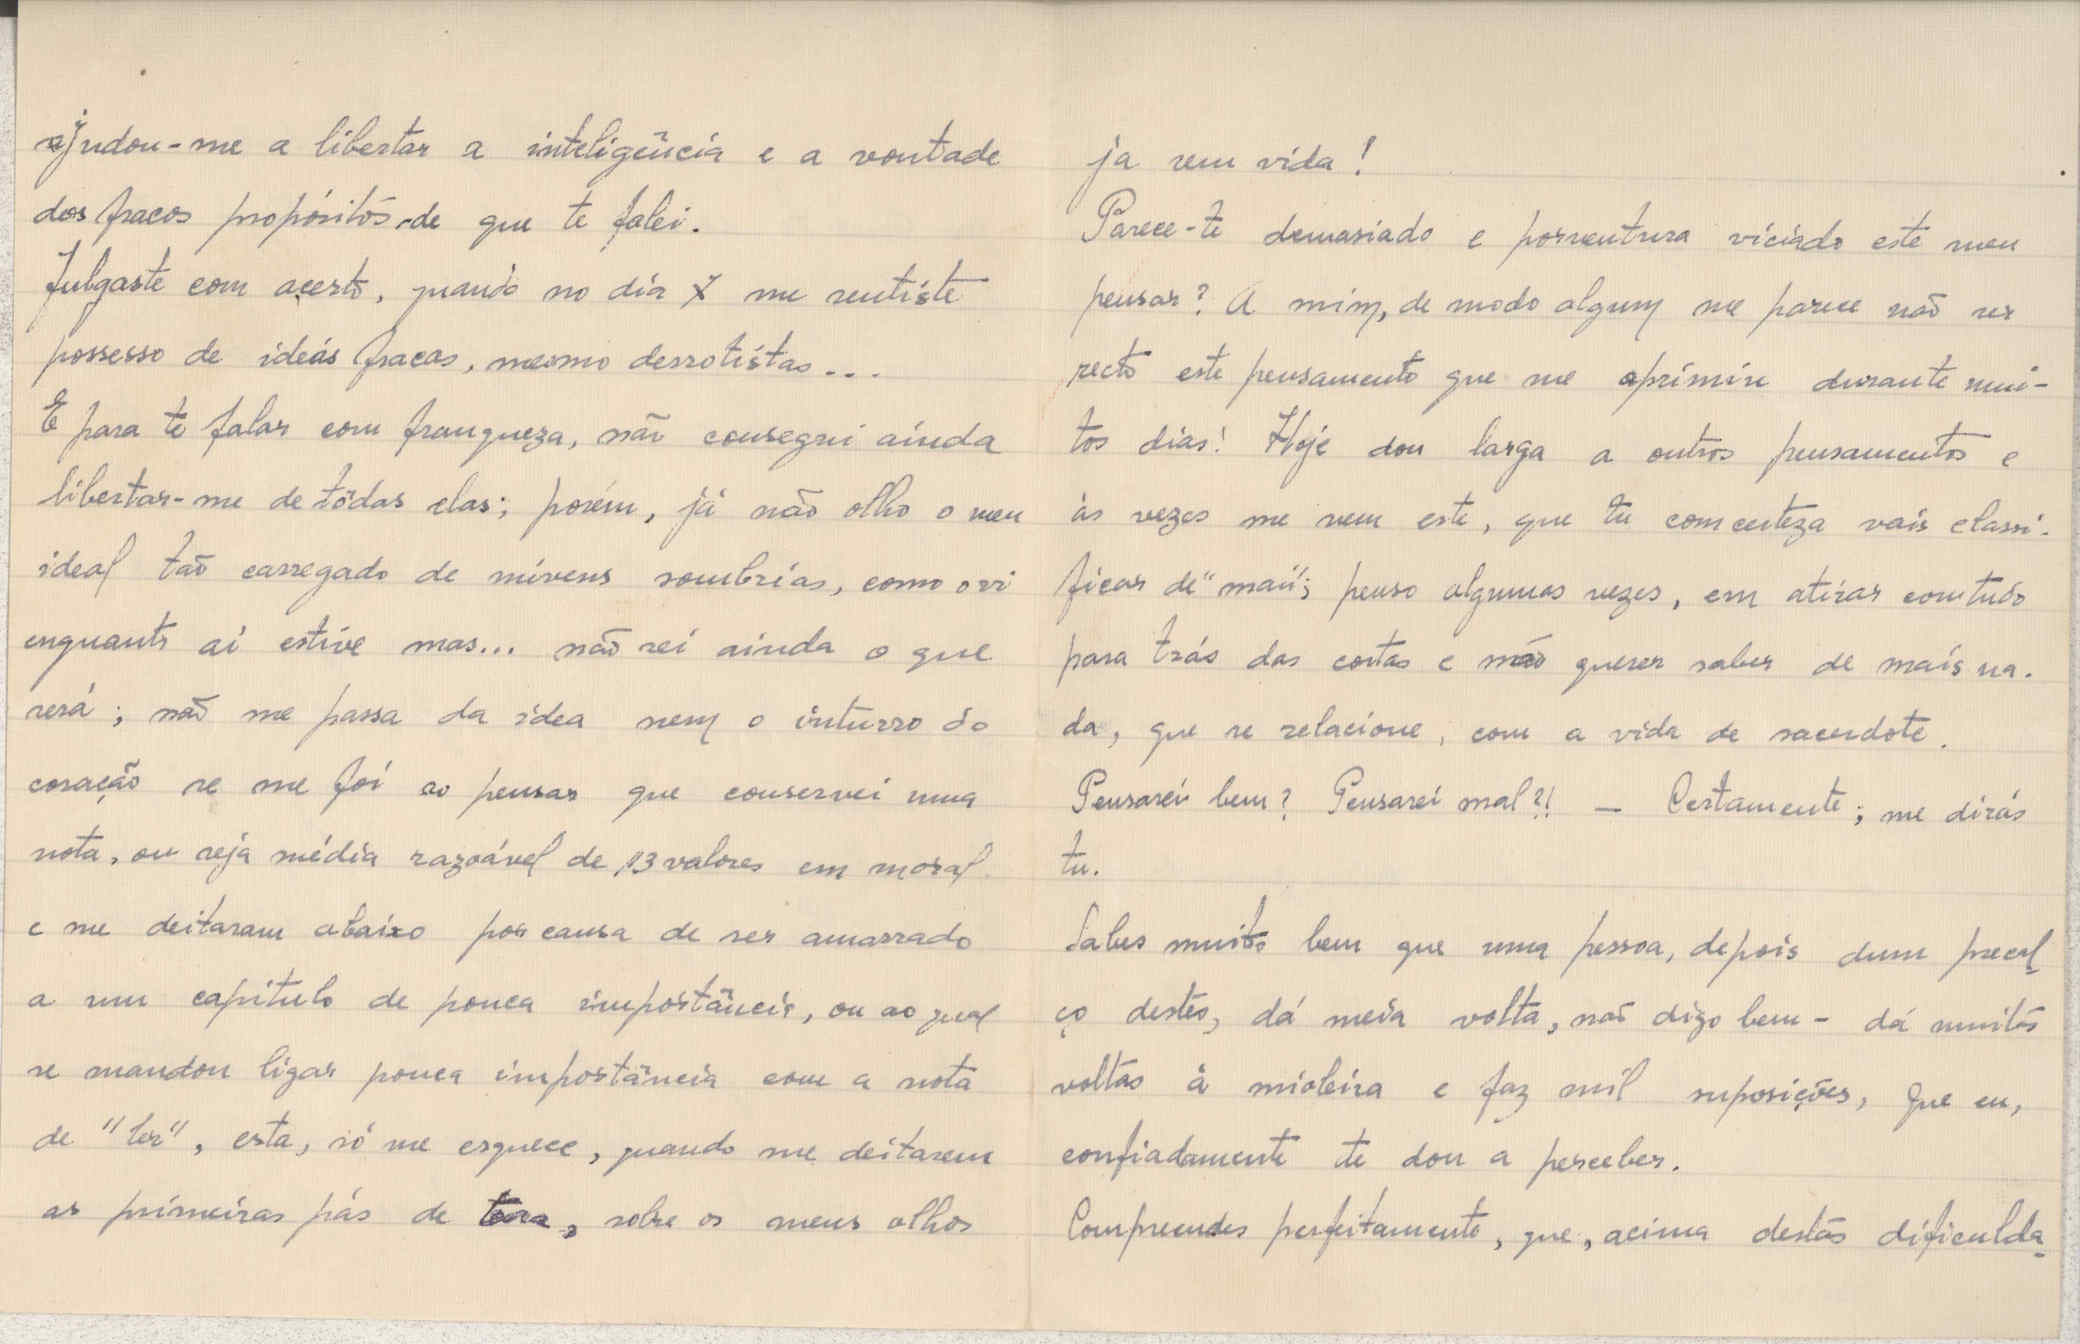 ajudou-me a libertar a inteligência e a vontade
dos fracos propósitos de que te falei.
Julgaste com acerto, quando no dia X me sentiste
possesso de ideás fracas, mesmo derrotistas...
E para te falar com franqueza, não consegui ainda
libertar-me de tôdas elas; porém, já não olho o meu
ideal tão carregado de núvens sombrias, como o vi
enquanto aí estive mas... não sei ainda o que
será; não me passa da idea nem o inturro do
coração se me foi ao pensar que conservei uma
nota, ou seja média razoável de 13 valores em moral
e me deitaram abaixo por causa de ser amarrado
a um capítulo de pouca importância, ou ao qual
se mandou ligar pouca importância com a nota
de "ler", esta, só me esquece, quando me deitarem
as primeiras pás de terra, sobre os meus olhos
ja sem vida!
Parece-te demasiado e porventura viciado este meu
pensar? A mim, de modo algum me parece não ser
recto este pensamento que me oprimiu durante mui-
tos dias! Hoje dou larga a outros pensamentos e
às vezes me vem este, que tu comcerteza vais classi-
ficar de "mau"; penso algumas vezes, em atirar comtudo
para trás das costas e não querer saber de mais na-
da, que se relacione, com a vida de sacerdote.
Pensarei bem? Pensarei mal?! — Certamente; me dirás
tu.
Sabes muito bem que uma pessoa, depois dum precal-
ço destes, dá meia volta, não digo bem - dá muitas
voltas à mioleira e faz mil suposições, que eu,
confiadamente te dou a perceber.
Compreendes perfeitamente, que, acima destas dificulda-